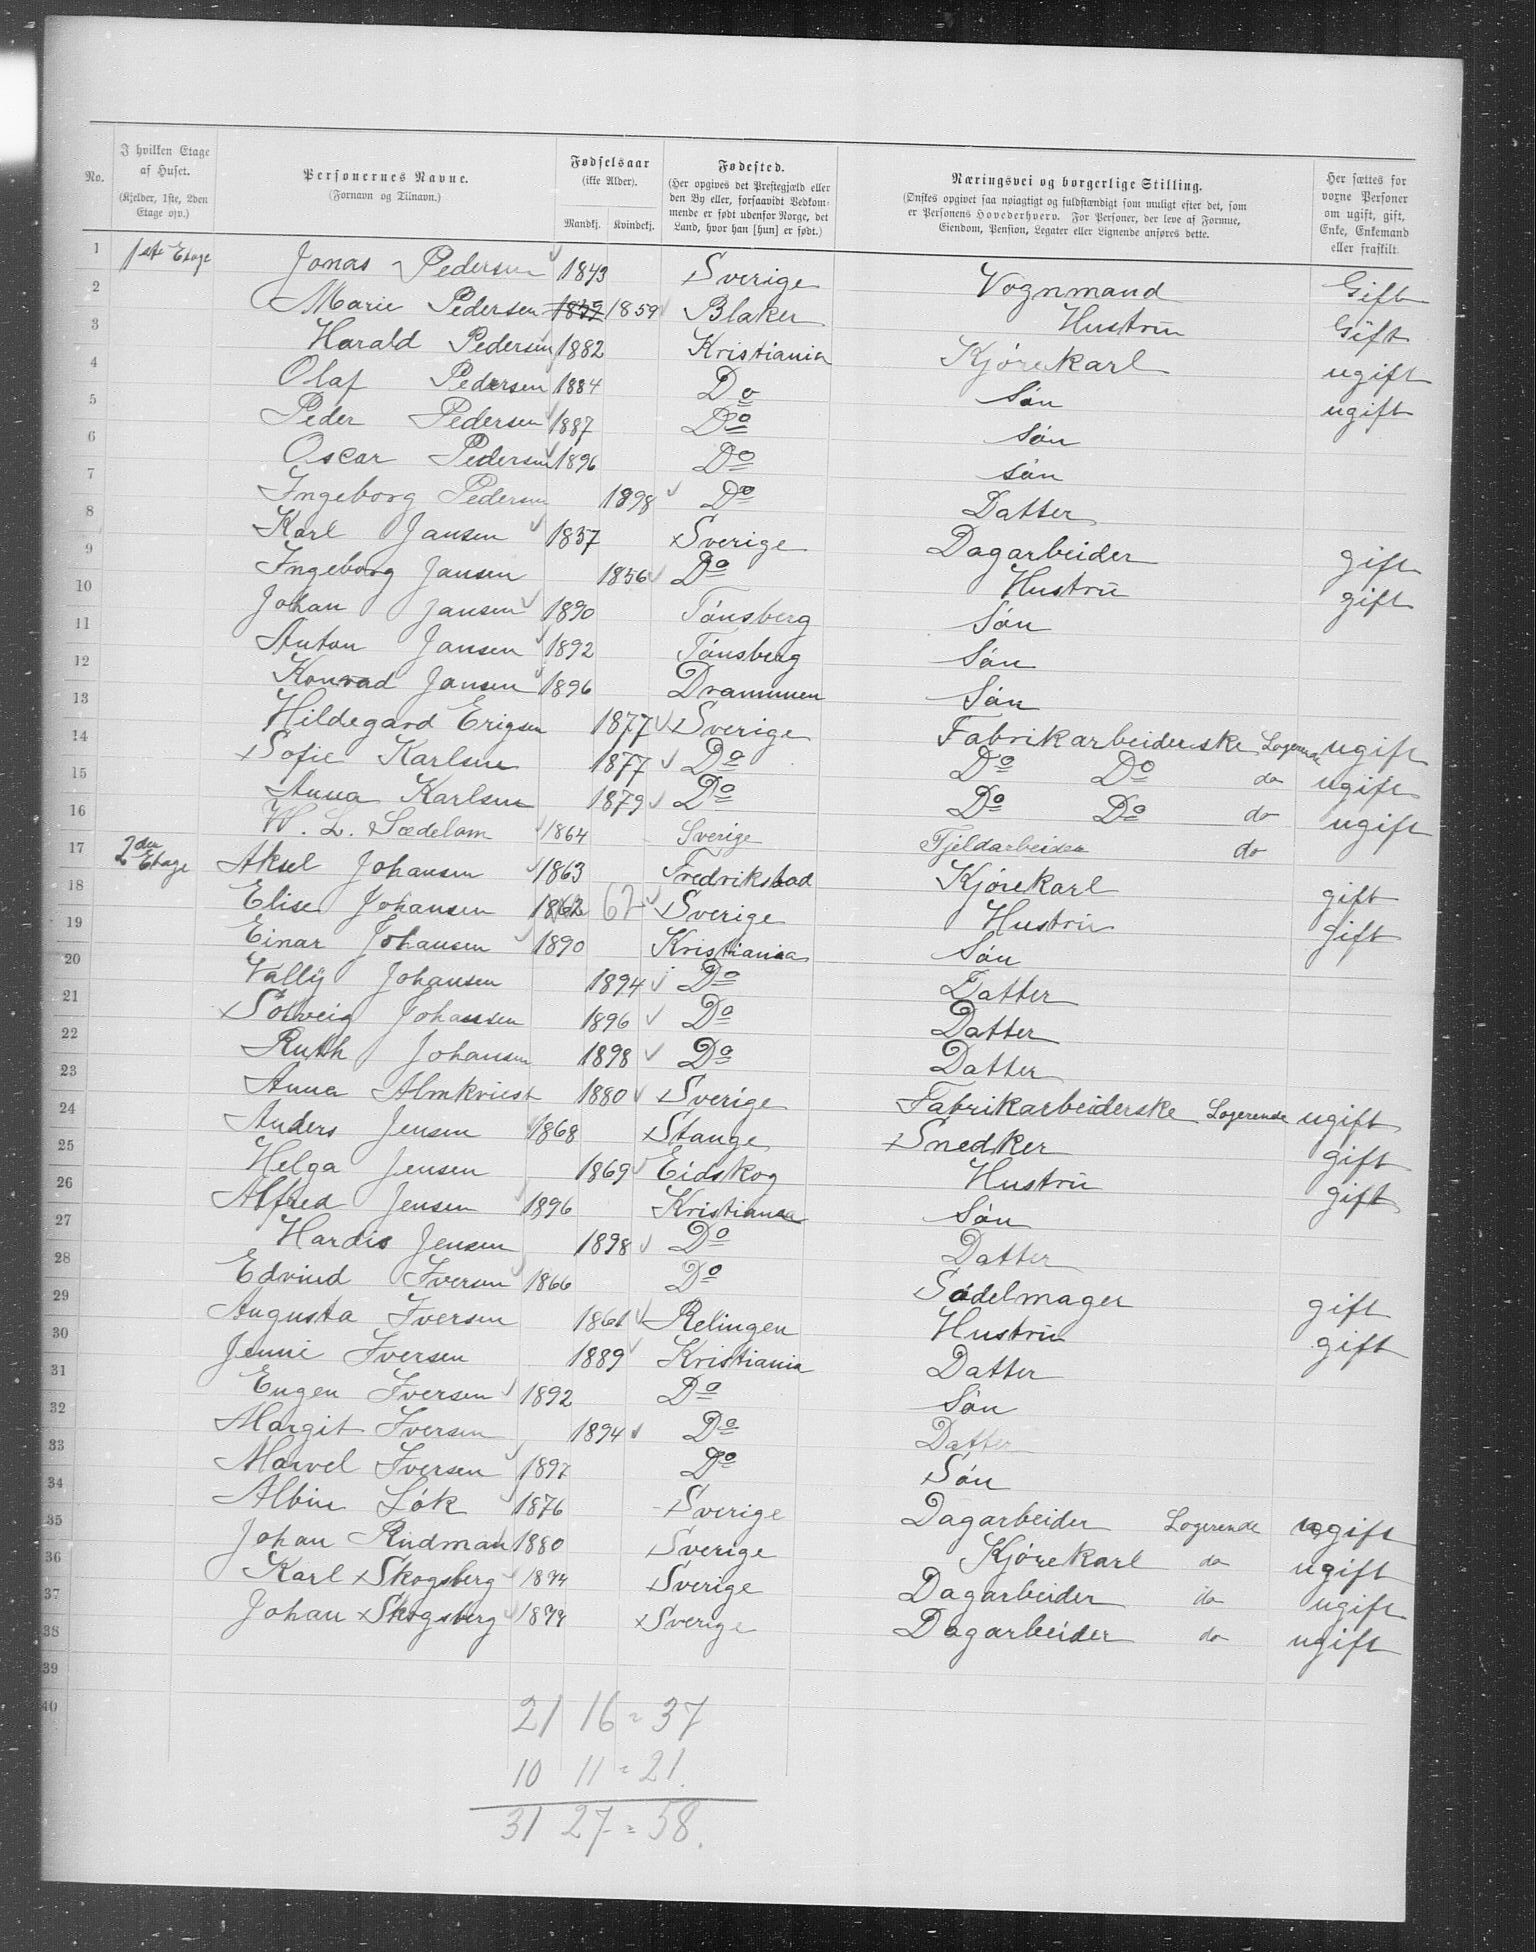 No. I hvilken Etage af Huset. (Kjelder, 1ste, 2den Etage osv.) Personernes Navne. (Fornavn og Tilnavn.) Fødselsaar (ikke Alder). Mandkj. Kvindekj. Fødested. (Her opgives det Prestegjæld eller den By eller, forsaavidt Vedkommende er født udenfor Norge, det Land, hvor han [hun] er født.) Næringsvei og borgerlige Stilling. (Ønskes opgivet saa nøiagtigt og fuldstændigt som muligt efter det, som er Personens Hovederhverv. For Personer, der leve af Formue, Eiendom, Pension, Legater eller Lignende anføres dette. Her sættes for voxne Personer om ugift, gift, Enke, Enkemand eller fraskilt.
1 1ste Etage Jonas Pedersen 1843 Sverige Vognmand Gift
2 Marie Pedersen 1859 1859 Blaker Hustru Gift
3 Harald Pedersen 1882 Kristiania Kjørekarl ugift
4 Olaf Pedersen 1884 Do Søn ugift
5 Peder Pedersen 1887 Do Søn
6 Oscar Pedersen 1896 Do søn
7 Ingeborg Pedersen 1898 Do Datter
8 Karl Jansen 1857 Sverige Dagarbeider gift
9 Ingeborg Jansen 1856 Do Hustru gift
10 Johan Jansen 1890 Tønsberg Søn
11 Anton Jansen 1892 Tønsberg Søn
12 Konrad Jansen 1896 Drammen Søn
13 Hildegard Erigsen 1877 Sverige Fabrikarbeiderske Logerende ugift
14 Sofie Karlsen 1877 Do Do Do do ugift
15 Anna Karlsen 1879 Do Do Do do ugift
16 W. L. Sædelom 1864 Sverige Fjeldarbeider do
17 2den Etage Aksel Johansen 1863 Fredrikstad Kjørekarl gift
18 Elise Johansen 1862 62 Sverige Hustru gift
19 Einar Johansen 1890 Kristiania Søn
20 Vally Johansen 1894 Do Datter
21 Solveig Johansen 1896 Do Datter
22 Ruth Johansen 1898 Do Datter
23 Anna Almkvist 1880 Sverige Fabrikarbeiderske Logerende ugift
24 Anders Jensen 1868 Stange Snedker gift
25 Helga Jensen 1869 Eidskog Hustru gift
26 Alfred Jensen 1896 Kristiania Søn
27 Hardis Jensen 1898 Do Datter
28 Edvind Iversen 1866 Do Sadelmager gift
29 Augusta Iversen 1861 Relingen Hustru gift
30 Jenni Iversen 1889 Kristiania Datter
31 Eugen Iversen 1892 Do Søn
32 Margit Iversen 1894 Do Datter
33 Marvel Iversen 1897 Do Søn
34 Albin Løk 1876 Sverige Dagarbeider Logerende ugift
35 Johan Rudman 1880 Sverige Kjørekarl do ugift
36 Karl Skogsberg 1874 Sverige Dagarbeider do ugift
37 Johan Skogsberg 1879 Sverige Dagarbeider do ugift
38
39
40
21 16 = 37
10 11 = 21.
31 27 = 58.